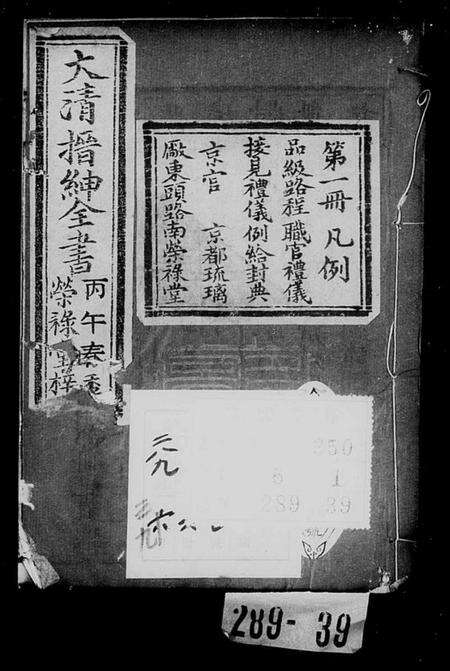 大清搢紳全書
丙午春季
榮祿堂梓
第一冊 凡例
品級路程 職官禮儀
接見禮儀 例給封典
京官 京都琉璃
厰東頭路南榮祿堂
三九
350
6 1
289 39
289-39